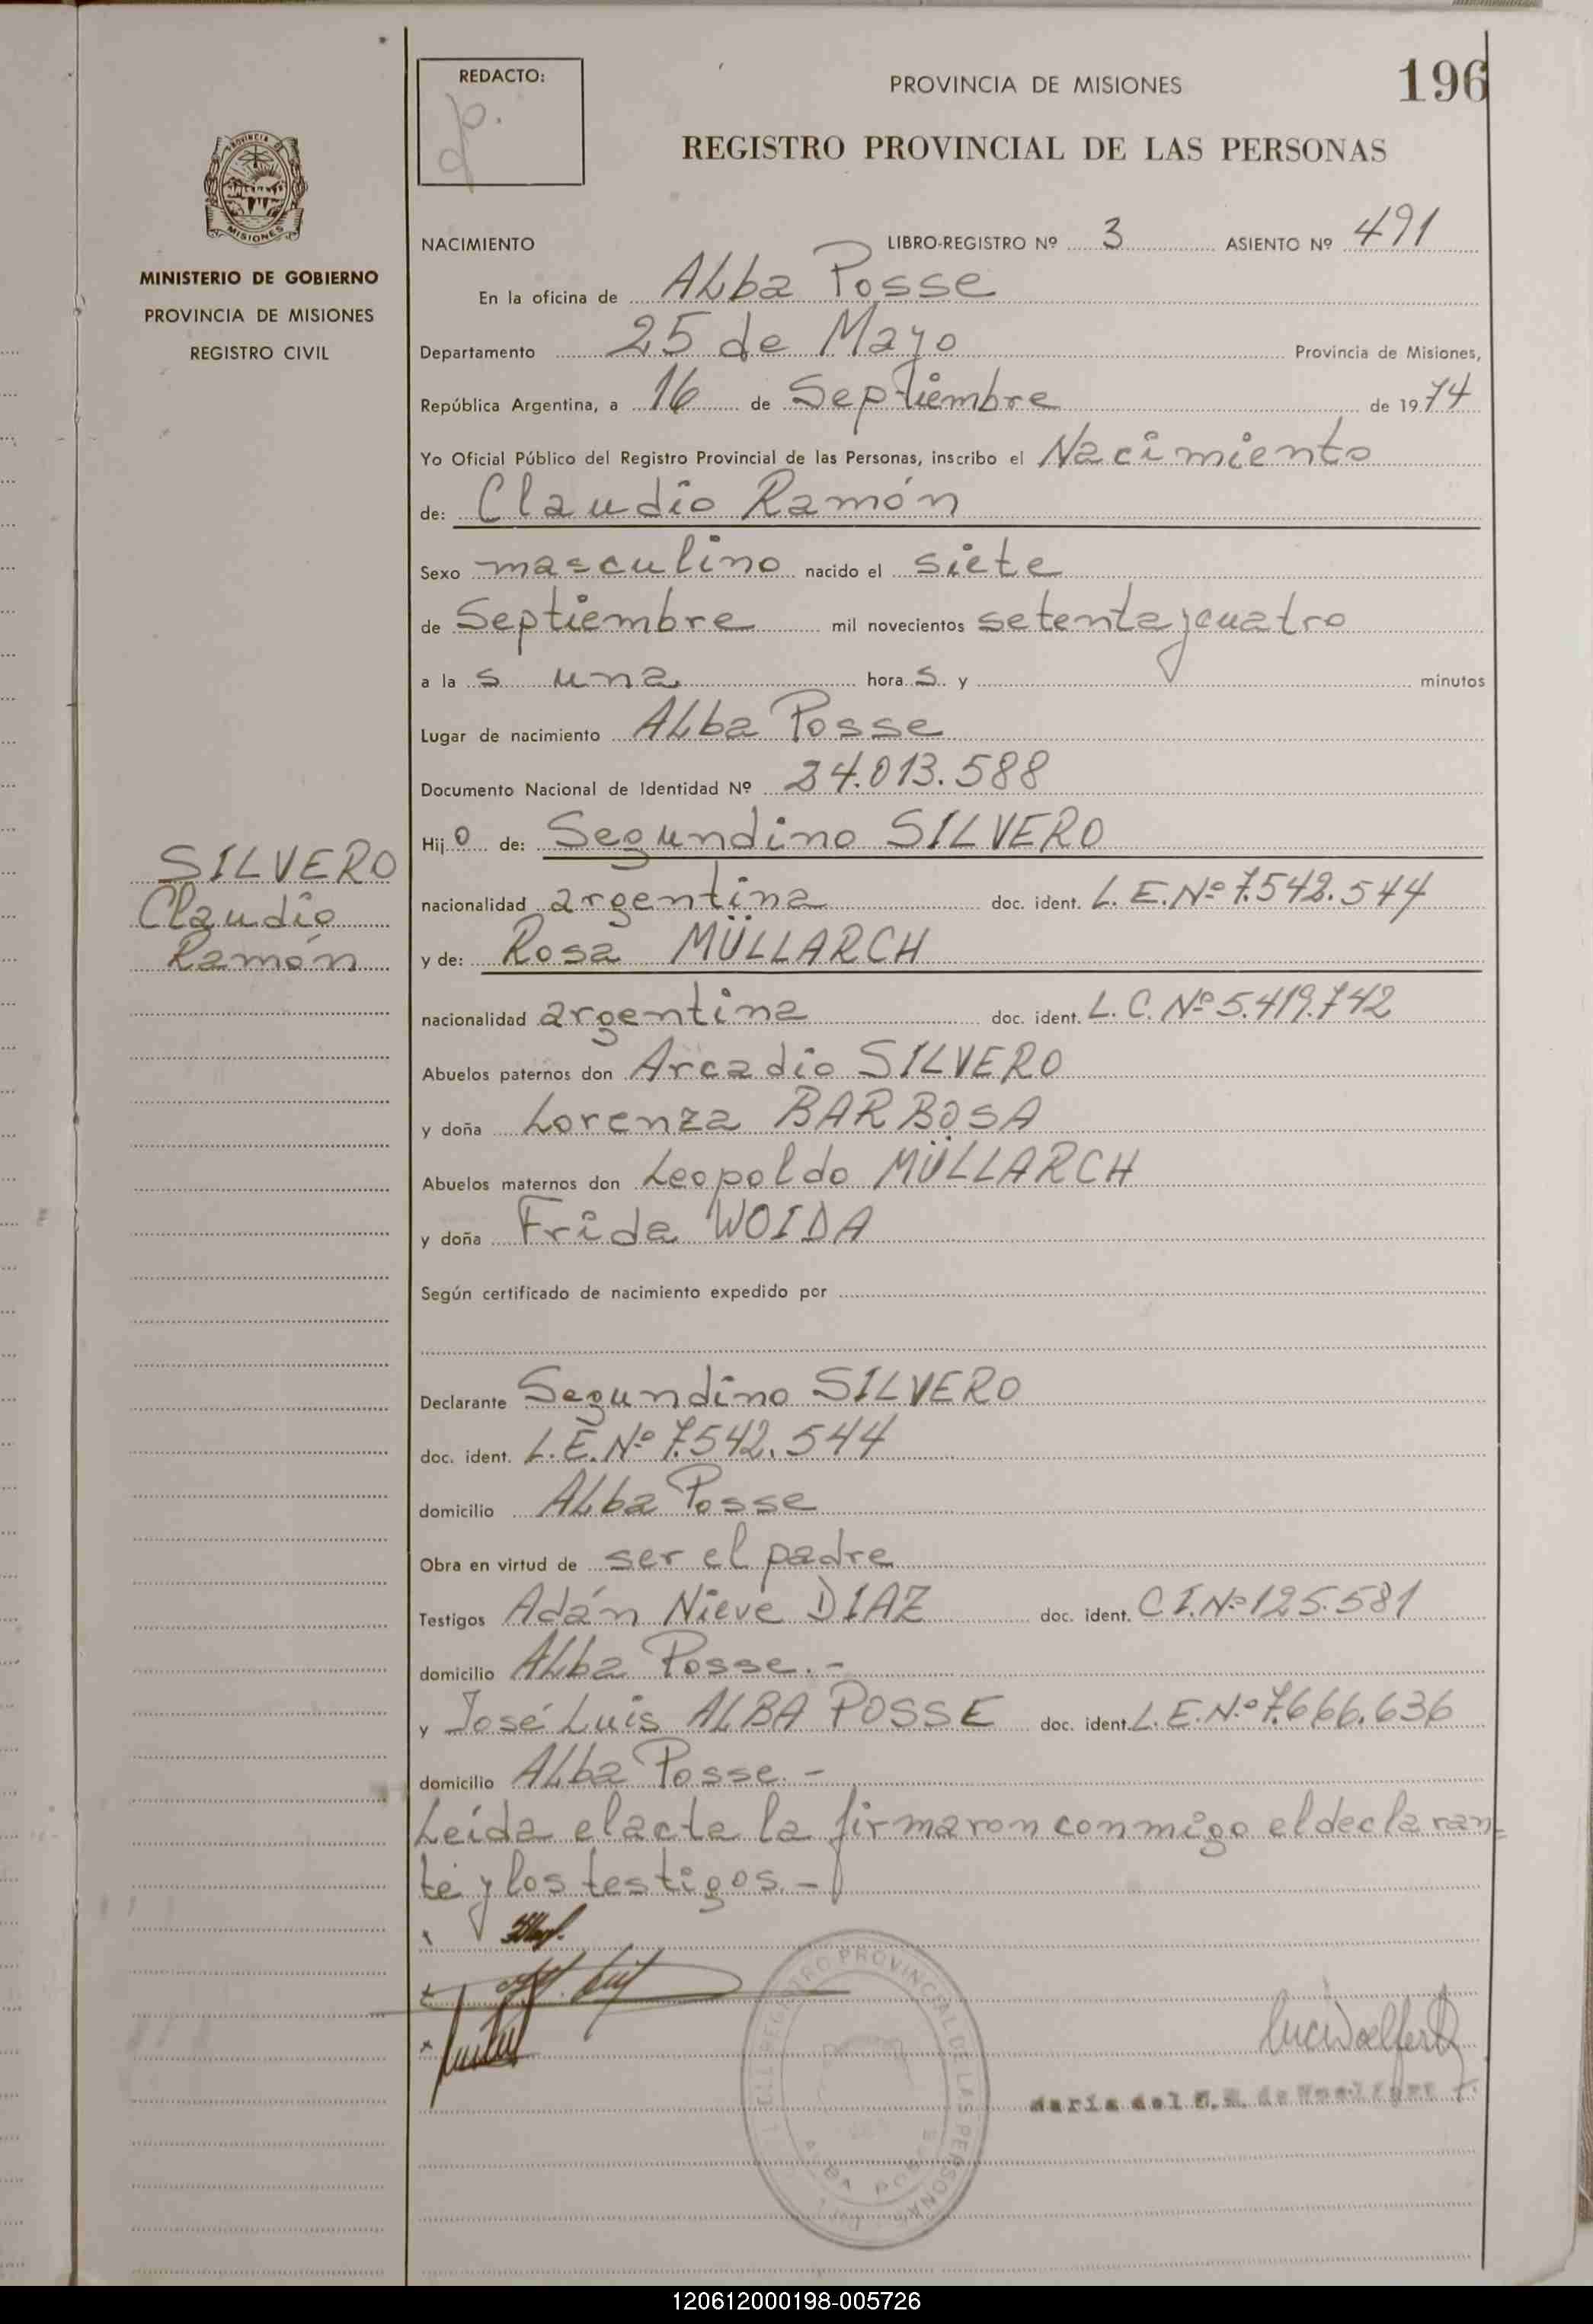 REDACTO:
PROVINCIA DE MISIONES
196
REGISTRO PROVINCIAL DE LAS PERSONAS
PROVINCIA DE
MISIONES
MINISTERIO DE GOBIERNO
PROVINCIA DE MISIONES
REGISTRO CIVIL
NACIMIENTO LIBRO-REGISTRO Nº 3 ASIENTO Nº 491
En la oficina de ALba Posse
Departamento 25 de Mayo Provincia de Misiones,
República Argentina, a 16 de Septiembre de 1974
Yo Oficial Público del Registro Provincial de las Personas, inscribo el Nacimiento
de: Claudio Ramón
Sexo masculino nacido el siete
de Septiembre mil novecientos setenta y cuatro
a la s una hora s y minutos
Lugar de nacimiento ALba Posse
Documento Nacional de Identidad Nº 24.013.588
Hijo de: Segundino SILVERO
nacionalidad argentina doc. ident. L.E.Nº 7.542.544
y de: Rosa MÜLLARCH
nacionalidad argentina doc. ident. L.C. Nº 5.419.742
Abuelos paternos don Arcadio SILVERO
y doña Lorenza BARBOSA
Abuelos maternos don Leopoldo MÜLLARCH
y doña Frida WOIDA
Según certificado de nacimiento expedido por
SILVERO
Claudio
Ramón
Declarante Segundino SILVERO
doc. ident. L.E.Nº 7.542.544
domicilio ALba Posse
Obra en virtud de ser el padre
Testigos Adán Nieve DIAZ doc. ident. C.I.Nº 125.581
domicilio ALba Posse.-
y José Luis ALBA POSSE doc. ident. L.E.Nº 7.666.636
domicilio ALba Posse.-
Leída el acta la firmaron conmigo el declaran=
te y los testigos.-
REGISTRO PROVINCIAL DE LAS PERSONAS
ALBA POSSE
María del
120612000198-005726